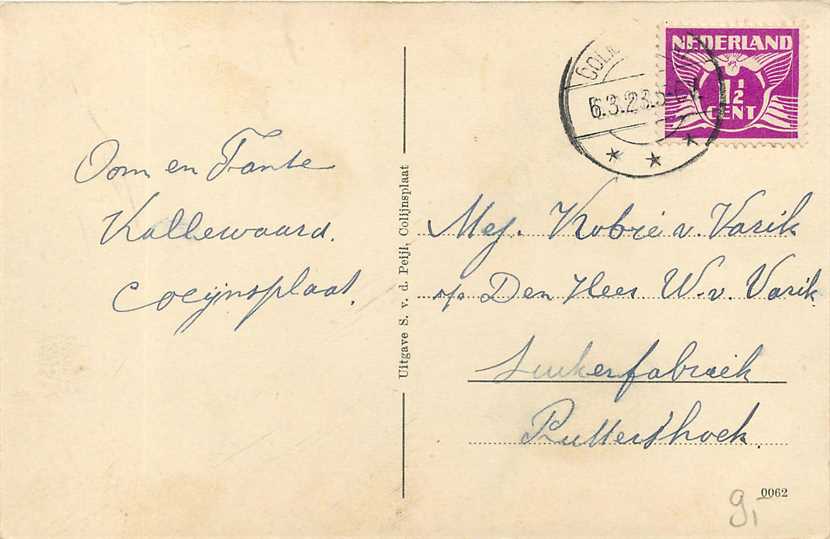 Oom en Tante
Kallewaard.
Colijnsplaat.
Uitgave S. v. d. Peijl, Colijnsplaat
COLI
6.3.23.
NEDERLAND
1½
CENT
Mej. Kobie v. Varik
p/a Den Heer W. v. Varik.
Suikerfabriek
Puttershoek.
0062
9,-